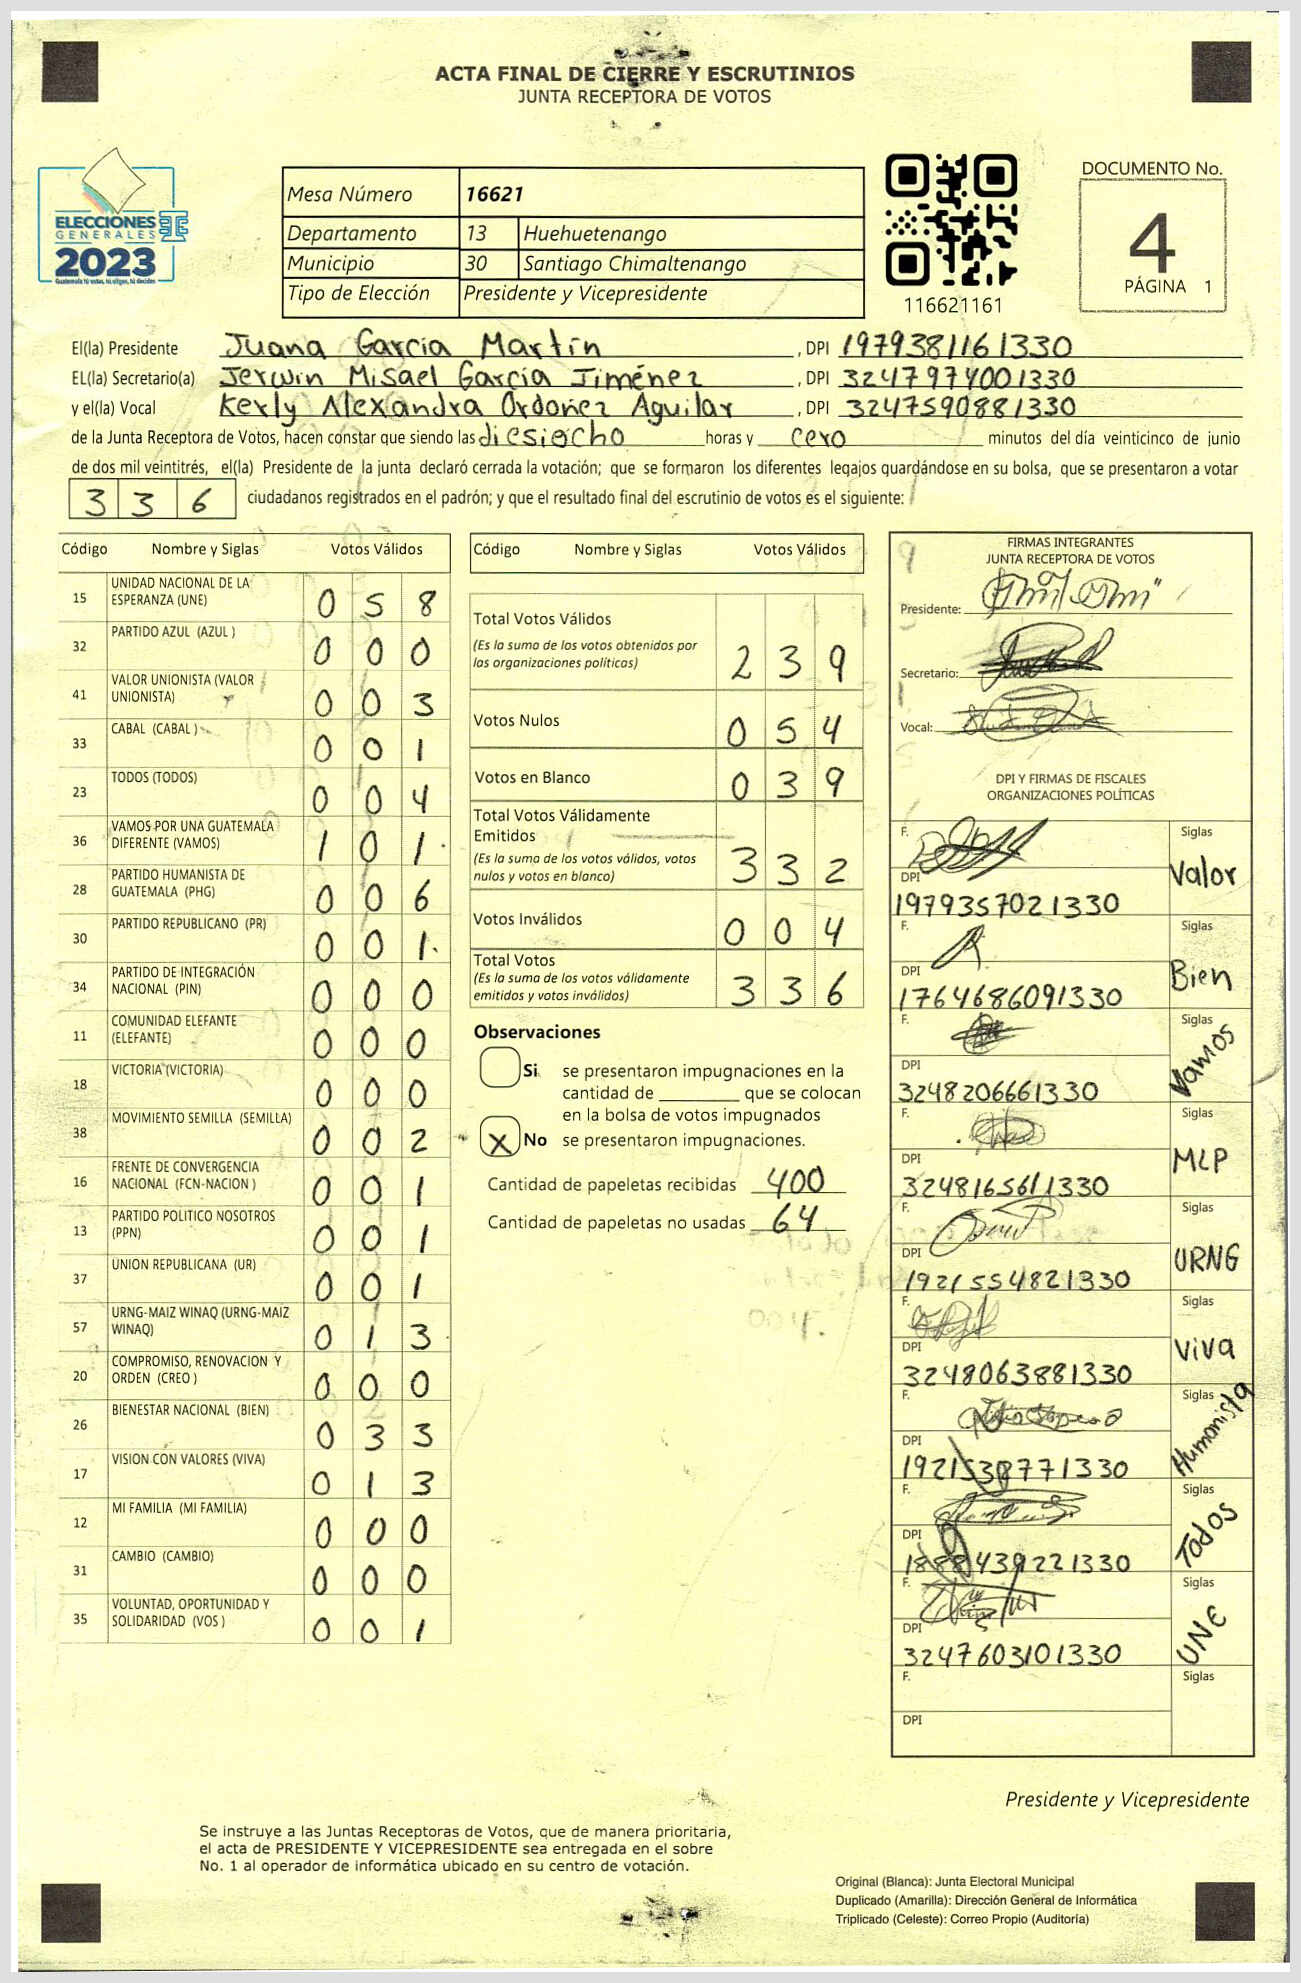 ACTA FINAL DE CIERRE Y ESCRUTINIOS
JUNTA RECEPTORA DE VOTOS
ELECCIONES
GENERALES
2023
Guatemala tú votas, tú eliges, tú decides
Mesa Número 16621
Departamento 13 Huehuetenango
Municipio 30 Santiago Chimaltenango
Tipo de Elección Presidente y Vicepresidente
116621161
DOCUMENTO No.
4
PÁGINA 1
El(la) Presidente Juana García Martín, DPI 1979381161330
EL(la) Secretario(a) Jerwin Misael García Jiménez, DPI 3247974001330
y el(la) Vocal Kerly Alexandra Ordoñez Aguilar, DPI 3247590881330
de la Junta Receptora de Votos, hacen constar que siendo las diesiocho horas y cero minutos del día veinticinco de junio
de dos mil veintitrés, el(la) Presidente de la junta declaró cerrada la votación; que se formaron los diferentes legajos guardándose en su bolsa, que se presentaron a votar
336 ciudadanos registrados en el padrón; y que el resultado final del escrutinio de votos es el siguiente:
Código Nombre y Siglas Votos Válidos
15 UNIDAD NACIONAL DE LA
ESPERANZA (UNE) 0 5 8
32 PARTIDO AZUL (AZUL ) 0 0 0
41 VALOR UNIONISTA (VALOR
UNIONISTA) 0 0 3
33 CABAL (CABAL ) 0 0 1
23 TODOS (TODOS) 0 0 4
36 VAMOS POR UNA GUATEMALA
DIFERENTE (VAMOS) 1 0 1
28 PARTIDO HUMANISTA DE
GUATEMALA (PHG) 0 0 6
30 PARTIDO REPUBLICANO (PR) 0 0 1
34 PARTIDO DE INTEGRACIÓN
NACIONAL (PIN) 0 0 0
11 COMUNIDAD ELEFANTE
(ELEFANTE) 0 0 0
18 VICTORIA (VICTORIA) 0 0 0
38 MOVIMIENTO SEMILLA (SEMILLA) 0 0 2
16 FRENTE DE CONVERGENCIA
NACIONAL (FCN-NACION ) 0 0 1
13 PARTIDO POLITICO NOSOTROS
(PPN) 0 0 1
37 UNION REPUBLICANA (UR) 0 0 1
57 URNG-MAIZ WINAQ (URNG-MAIZ
WINAQ) 0 1 3
20 COMPROMISO, RENOVACION Y
ORDEN (CREO ) 0 0 0
26 BIENESTAR NACIONAL (BIEN) 0 3 3
17 VISION CON VALORES (VIVA) 0 1 3
12 MI FAMILIA (MI FAMILIA) 0 0 0
31 CAMBIO (CAMBIO) 0 0 0
35 VOLUNTAD, OPORTUNIDAD Y
SOLIDARIDAD (VOS ) 0 0 1
Código Nombre y Siglas Votos Válidos
Total Votos Válidos
(Es la suma de los votos obtenidos por
las organizaciones políticas) 2 3 9
Votos Nulos 0 5 4
Votos en Blanco 0 3 9
Total Votos Válidamente
Emitidos
(Es la suma de los votos válidos, votos
nulos y votos en blanco) 3 3 2
Votos Inválidos 0 0 4
Total Votos
(Es la suma de los votos válidamente
emitidos y votos inválidos) 3 3 6
Observaciones
Si se presentaron impugnaciones en la
cantidad de ________ que se colocan
en la bolsa de votos impugnados
X No se presentaron impugnaciones.
Cantidad de papeletas recibidas 400
Cantidad de papeletas no usadas 64
FIRMAS INTEGRANTES
JUNTA RECEPTORA DE VOTOS
Presidente:
Secretario:
Vocal:
DPI Y FIRMAS DE FISCALES
ORGANIZACIONES POLÍTICAS
F. Siglas
Valor
DPI
1979357021330
F. Siglas
Bien
DPI
1764686091330
F. Siglas
Vamos
DPI
3248206661330
F. Siglas
MLP
DPI
3248165611330
F. Siglas
URNG
DPI
1921554821330
F. Siglas
Viva
DPI
3248063881330
F. Siglas
Humanista
DPI
1921538771330
F. Siglas
Todos
DPI
1888439221330
F. Siglas
UNE
DPI
3247603101330
F. Siglas
DPI
Presidente y Vicepresidente
Se instruye a las Juntas Receptoras de Votos, que de manera prioritaria,
el acta de PRESIDENTE Y VICEPRESIDENTE sea entregada en el sobre
No. 1 al operador de informática ubicado en su centro de votación.
Original (Blanca): Junta Electoral Municipal
Duplicado (Amarilla): Dirección General de Informática
Triplicado (Celeste): Correo Propio (Auditoría)